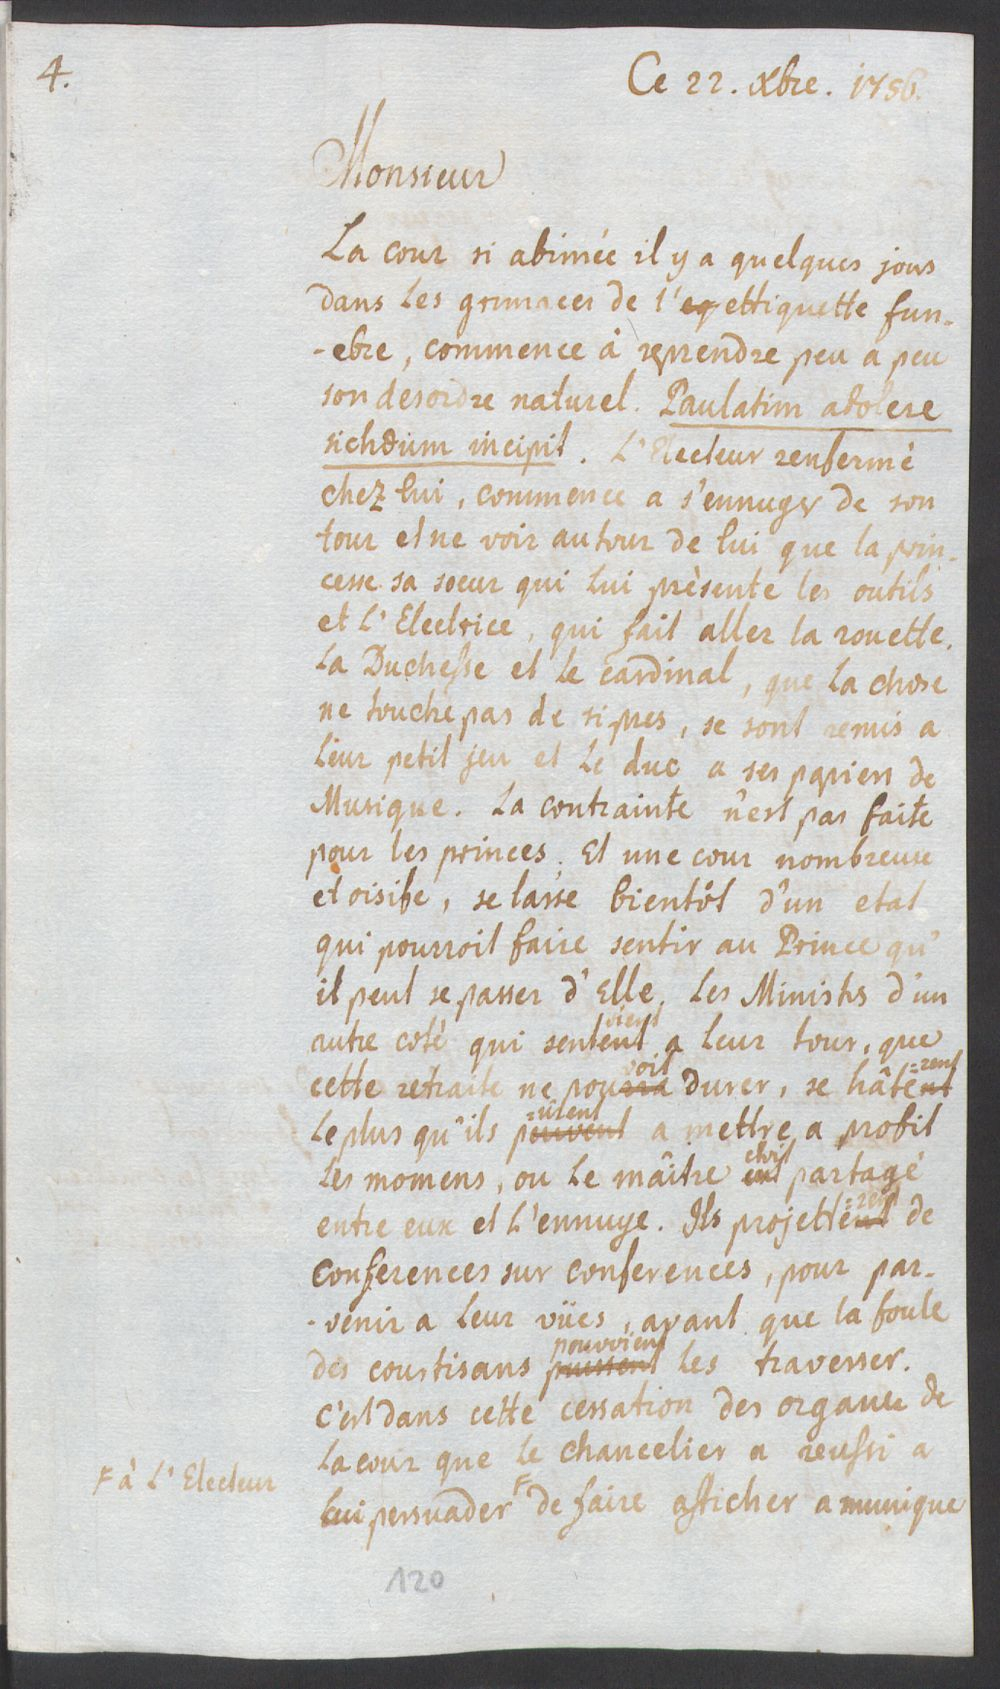 4.
Ce 22. Xbre. 1756.
Monsieur
La cour si abimée il y a quelques jours
dans les grimaces de l'eq ettiquette fun-
-ebre, commence à reprendre peu a peu
son desordre naturel. Paulatim abolere
sichæum incipit. L'Electeur renfermé
chez lui, commence a s'ennuyer de son
tour et ne voir autour de lui que la prin-
cesse sa soeur qui lui présente les outils
et L'Electrice, qui fait aller la rouette.
La Duchesse et le cardinal, que la chose
ne touche pas de si pres, se sont remis a
leur petit jeu et Le duc a ses papiers de
Musique. La contrainte n'est pas faite
pour les princes. Et une cour nombreuse
et oisife, se lasse bientôt d'un etat
qui pourroit faire sentir au Prince qu'
il peut se passer d'Elle. Les Ministres d'un
autre coté qui sentent a leur tour, que
cette retraite ne pourra durer, se hâtent
voient
voit
=rent
le plus qu'ils peuvent a mettre a profit
=urent
les momens, ou le maître est partagé
etoit
entre eux et L'ennuye. Ils projettent de
=rent
conferences sur conferences, pour par-
-venir a leur vües, avant que la foule
des courtisans pussent les traverser.
pouvoient
C'est dans cette cessation des organes de
La cour que le chancelier a reussi a
lui persuader F de faire afficher a munique
F à L'Electeur
120